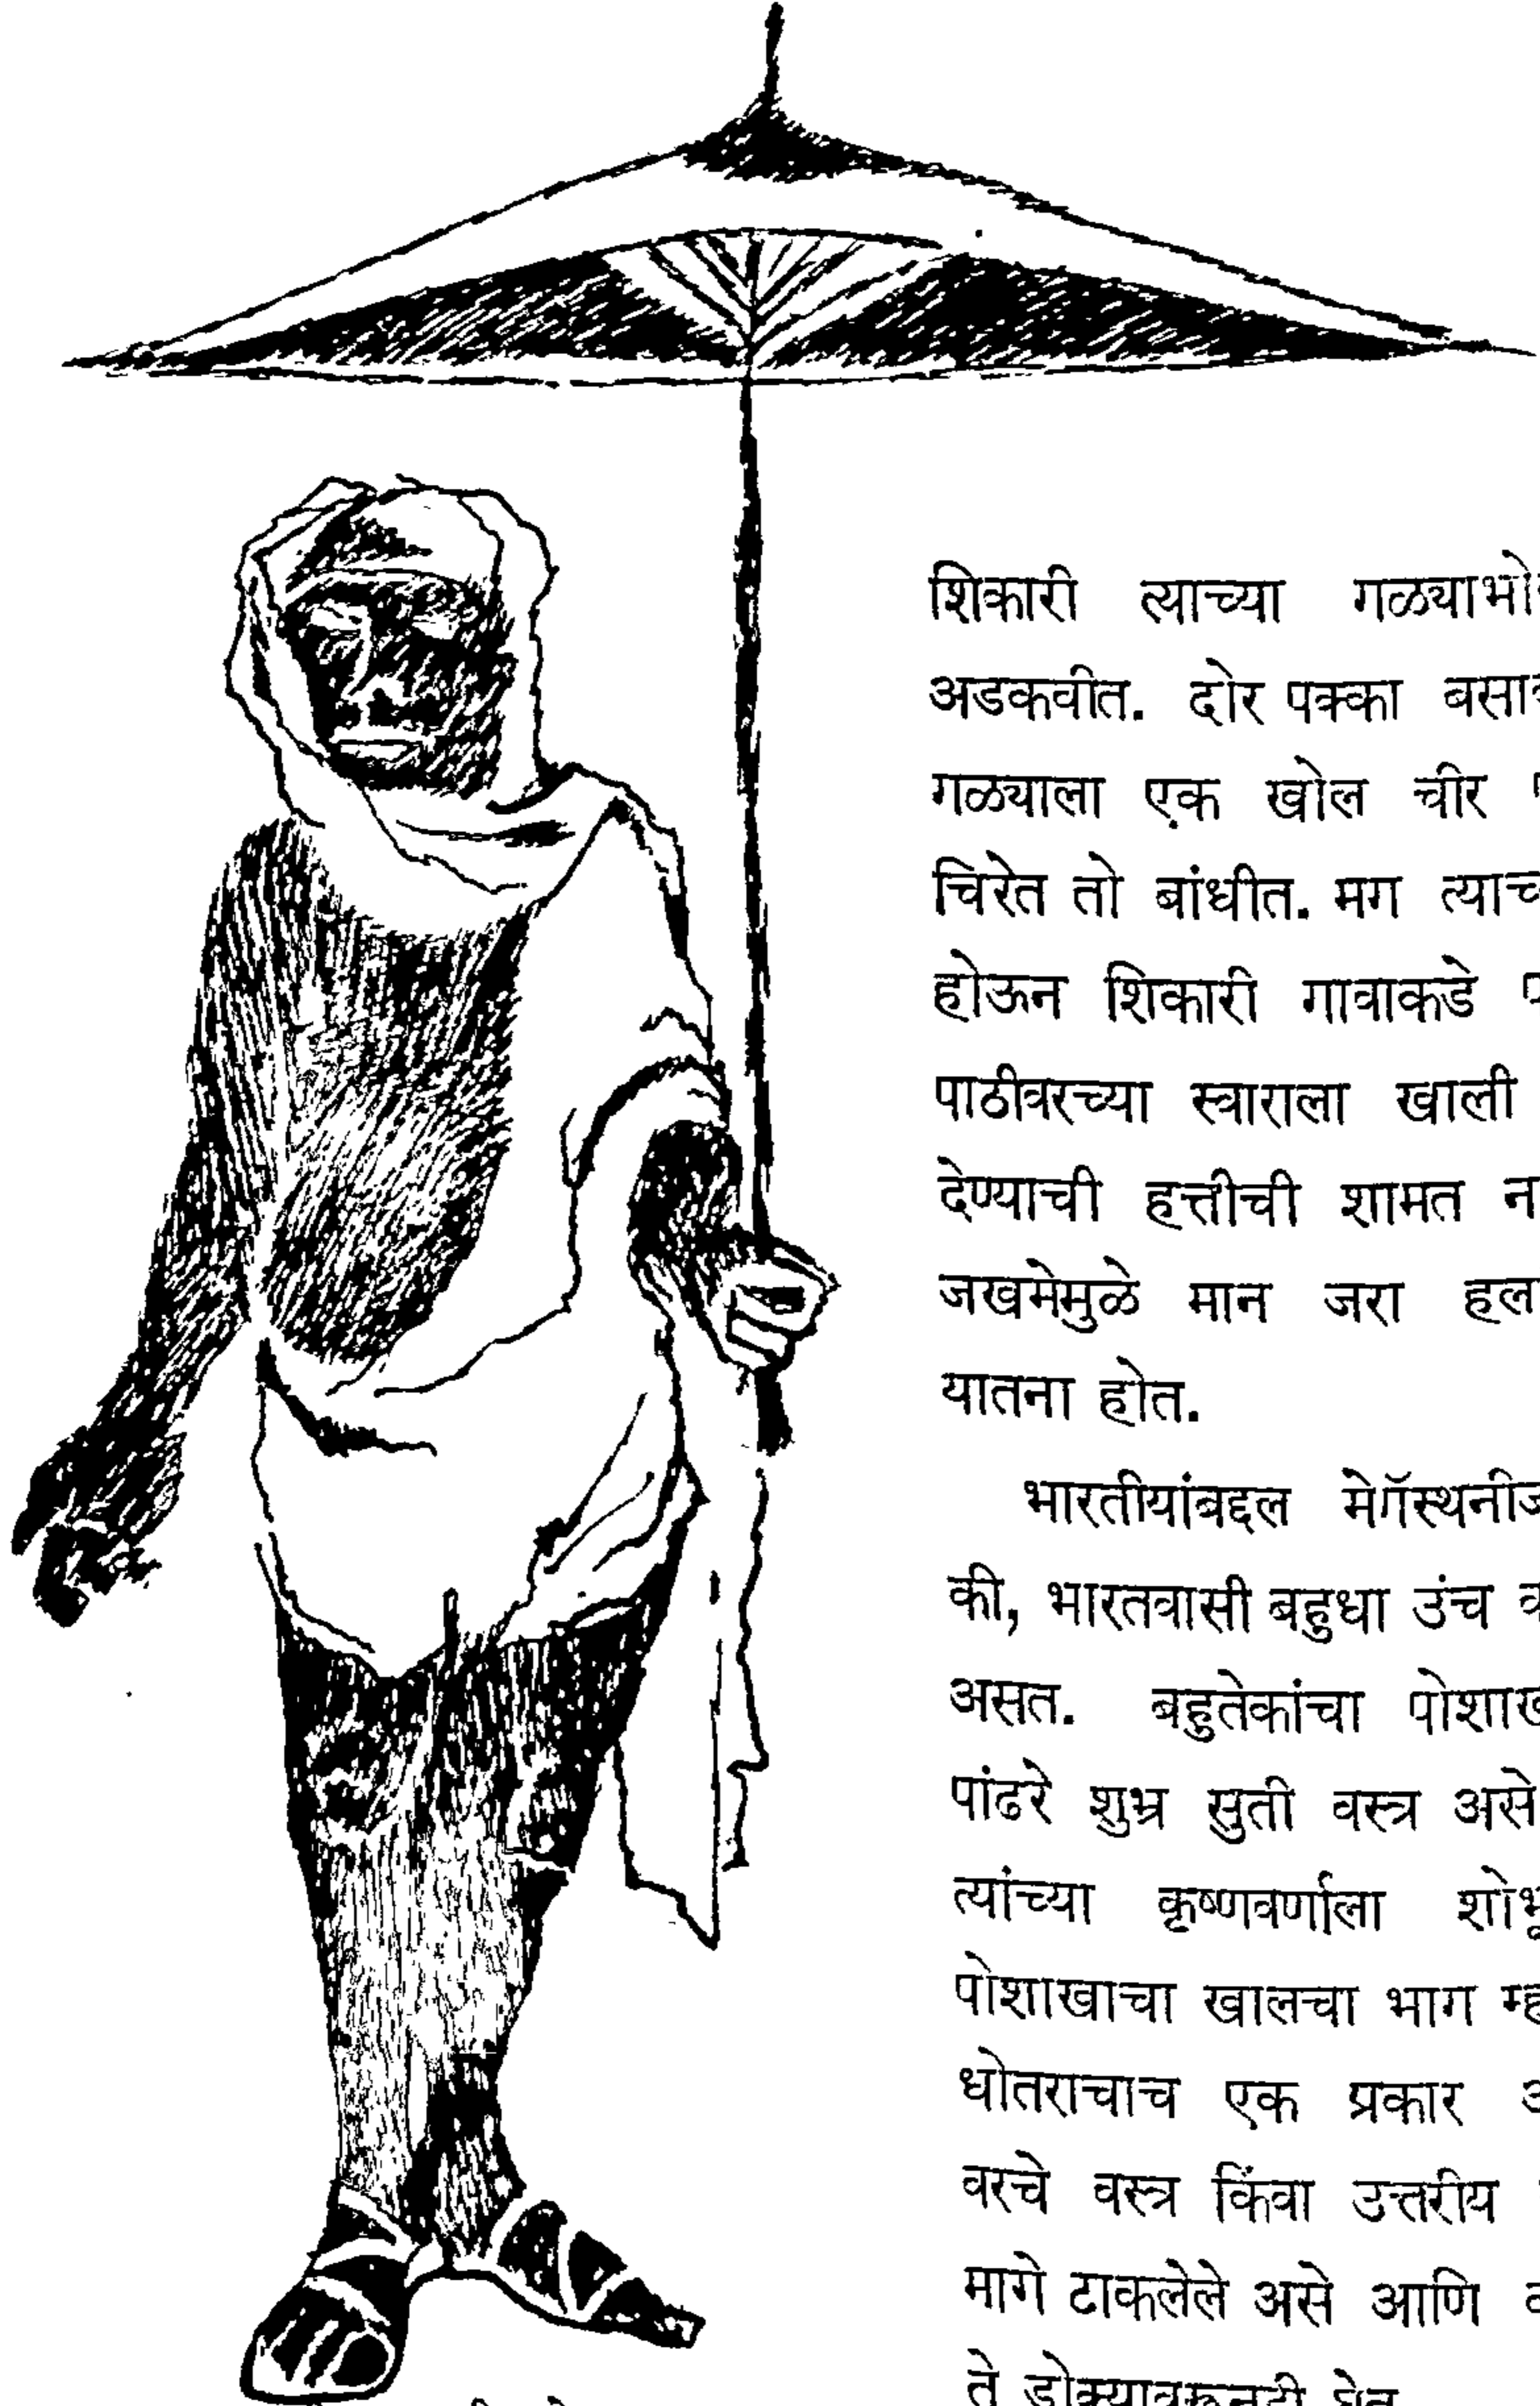 शिकारी त्याच्या
अडकवीत. दोर पक्का
गळ्याला एक खोल चीर
चिरेत तो बांधीत. मग
होऊन शिकारी गावाकडे
पाठीवरच्या स्वाराला खाली
देण्याची हत्तीची शामत
जखमेमुळे मान जरा
यातना होत.
भारतीयांबद्दल
की, भारतवासी बहुधा उंच
असत. बहुतेकांचा
पांढरे शुभ्र सुती वस्त्र असे
त्यांच्या कृष्णवर्णाला
पोशाखाचा खालचा भाग
धोतराचाच एक प्रकार
वरचे वस्त्र किंवा उत्तरीय
मागे टाकलेले असे आणि